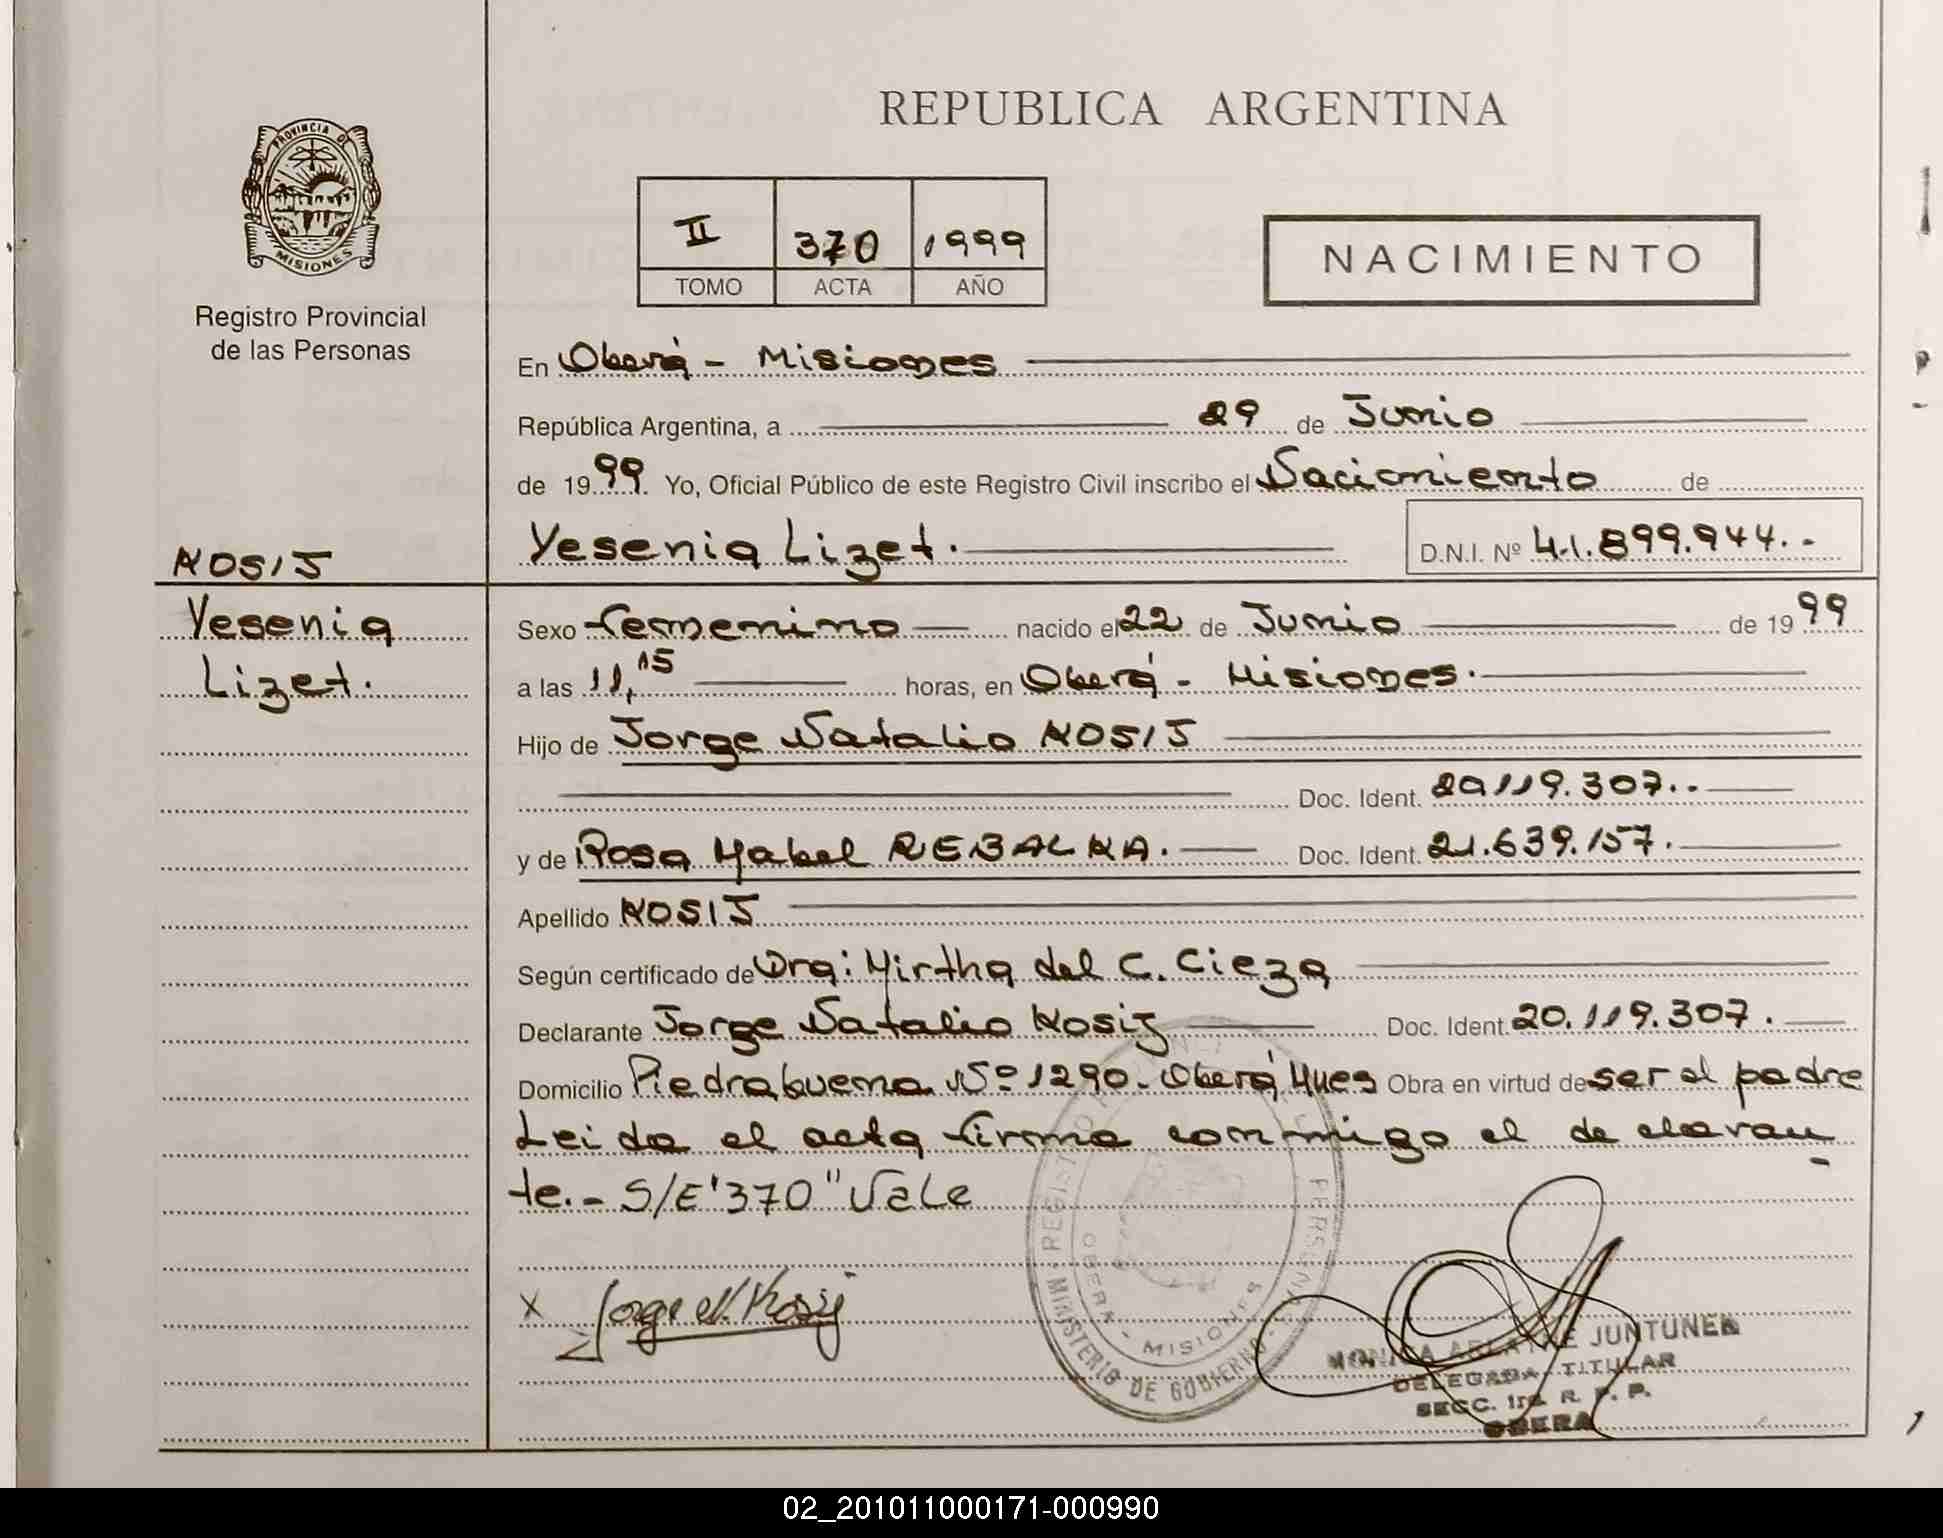 REPUBLICA ARGENTINA
PROVINCIA DE
MISIONES
Registro Provincial
de las Personas
II 370 1999
TOMO ACTA AÑO
NACIMIENTO
En Oberá - Misiones
República Argentina, a 29 de Junio
de 1999. Yo, Oficial Público de este Registro Civil inscribo el Nacimiento de
Yesenia Lizet. D.N.I. Nº 41.899.944.-
KOSIJ
Yesenia
Lizet.
Sexo femenino nacido el 22 de Junio de 1999
a las 11,15 horas, en Oberá - Misiones.
Hijo de Jorge Natalio KOSIJ
Doc. Ident. 20119.307.-
y de Rosa Mabel REBALKA. Doc. Ident. 21.639.157.
Apellido KOSIJ
Según certificado de Dra: Mirtha del C. Cieza
Declarante Jorge Natalio Kosij Doc. Ident. 20.119.307.
Domicilio Piedrabuena Nº 1290. Oberá, Mnes Obra en virtud de ser el padre
Leida el acta firma conmigo el declaran
te.- S/E "370" Vale
x Jorge N. Kosij
REGISTRO PERSONAS
OBERA - MISIONES
MINISTERIO DE GOBIERNO
MONICA JUNTUNEN
DELEGADA TITULAR
SECC. 1ra. R. P. P.
OBERA
02_201011000171-000990